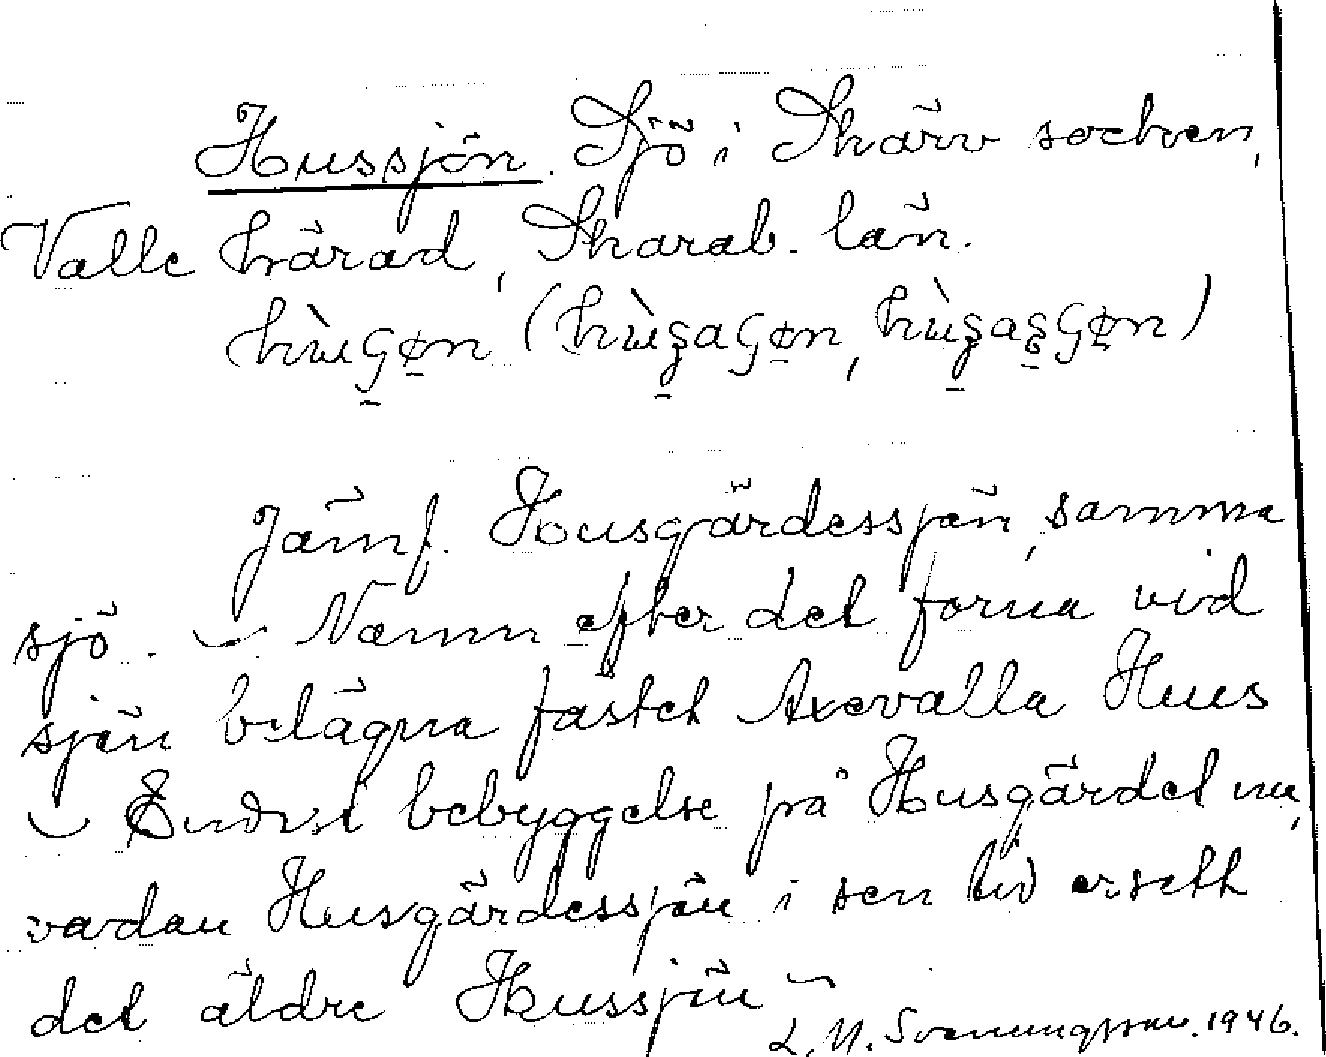 Hussjön. Sjö i Skärv socken,
Valle härad, Skarab. län.
Jämf. Husgärdessjön, samma
sjö. — Namn efter det forna vid
sjön belägna fästet Axevalla Hus
— Endast bebyggelse på Husgärdet nu,
vadan Husgärdessjön i sen tid ersatt
det äldre Hussjön —
L. M. Svenungsson. 1946.